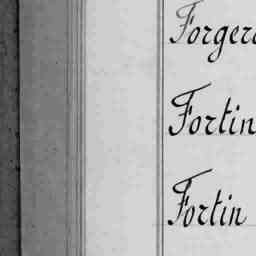 Forger
Fortin
Fortin